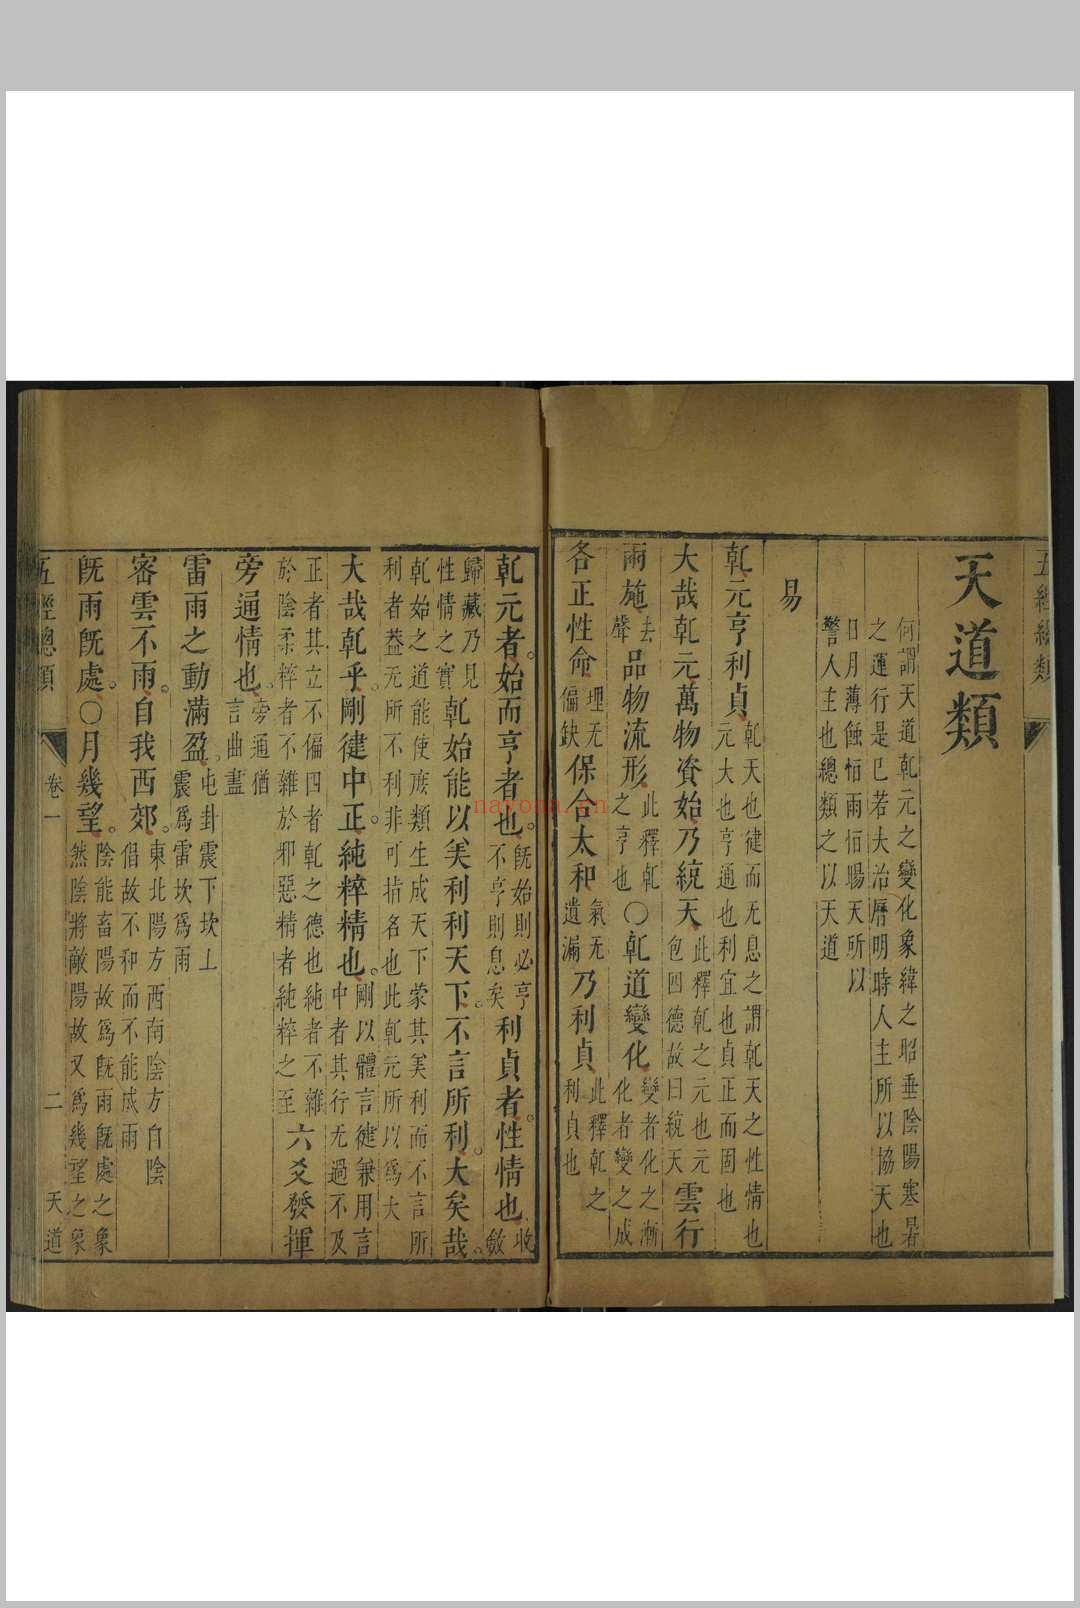 五經總類
天道類
何謂天道乾元之變化象緯之昭垂陰陽寒暑
之運行是已若夫治曆明時人主所以協天也
日月薄蝕恒雨恒暘天所以
警人主也總類之以天道
易
乾元亨利貞乾天也健而无息之謂乾天之性情也
元大也亨通也利宜也貞正而固也
大哉乾元萬物資始乃統天此釋乾之元也元
包四德故曰統天雲行
雨施去
聲品物流形此釋乾
之亨也〇乾道變化變者化之漸
化者變之成
各正性命理无
偏缺保合太和氣无
遺漏乃利貞此釋乾之
利貞也
乾元者始而亨者也旣始則必亨
不亨則息矣利貞者性情也收
斂
歸藏乃見
性情之實乾始能以美利利天下不言所利大矣哉
乾始之道能使庶類生成天下蒙其美利而不言所
利者蓋无所不利非可指名也此乾元所以爲大
大哉乾乎剛健中正純粹精也剛以體言健兼用言
中者其行无過不及
正者其立不偏四者乾之德也純者不雜
於陰柔粹者不雜於邪惡精者純粹之至六爻發揮
旁通情也旁通猶
言曲盡
雷雨之動滿盈屯卦震下坎上
震爲雷坎爲雨
密雲不雨自我西郊東北陽方西南陰方自陰
倡故不和而不能成雨
旣雨旣處〇月幾望陰能畜陽故爲旣雨旣處之象
然陰將敵陽故又爲幾望之象
五經總類
卷一
二
天道
nayona.cn